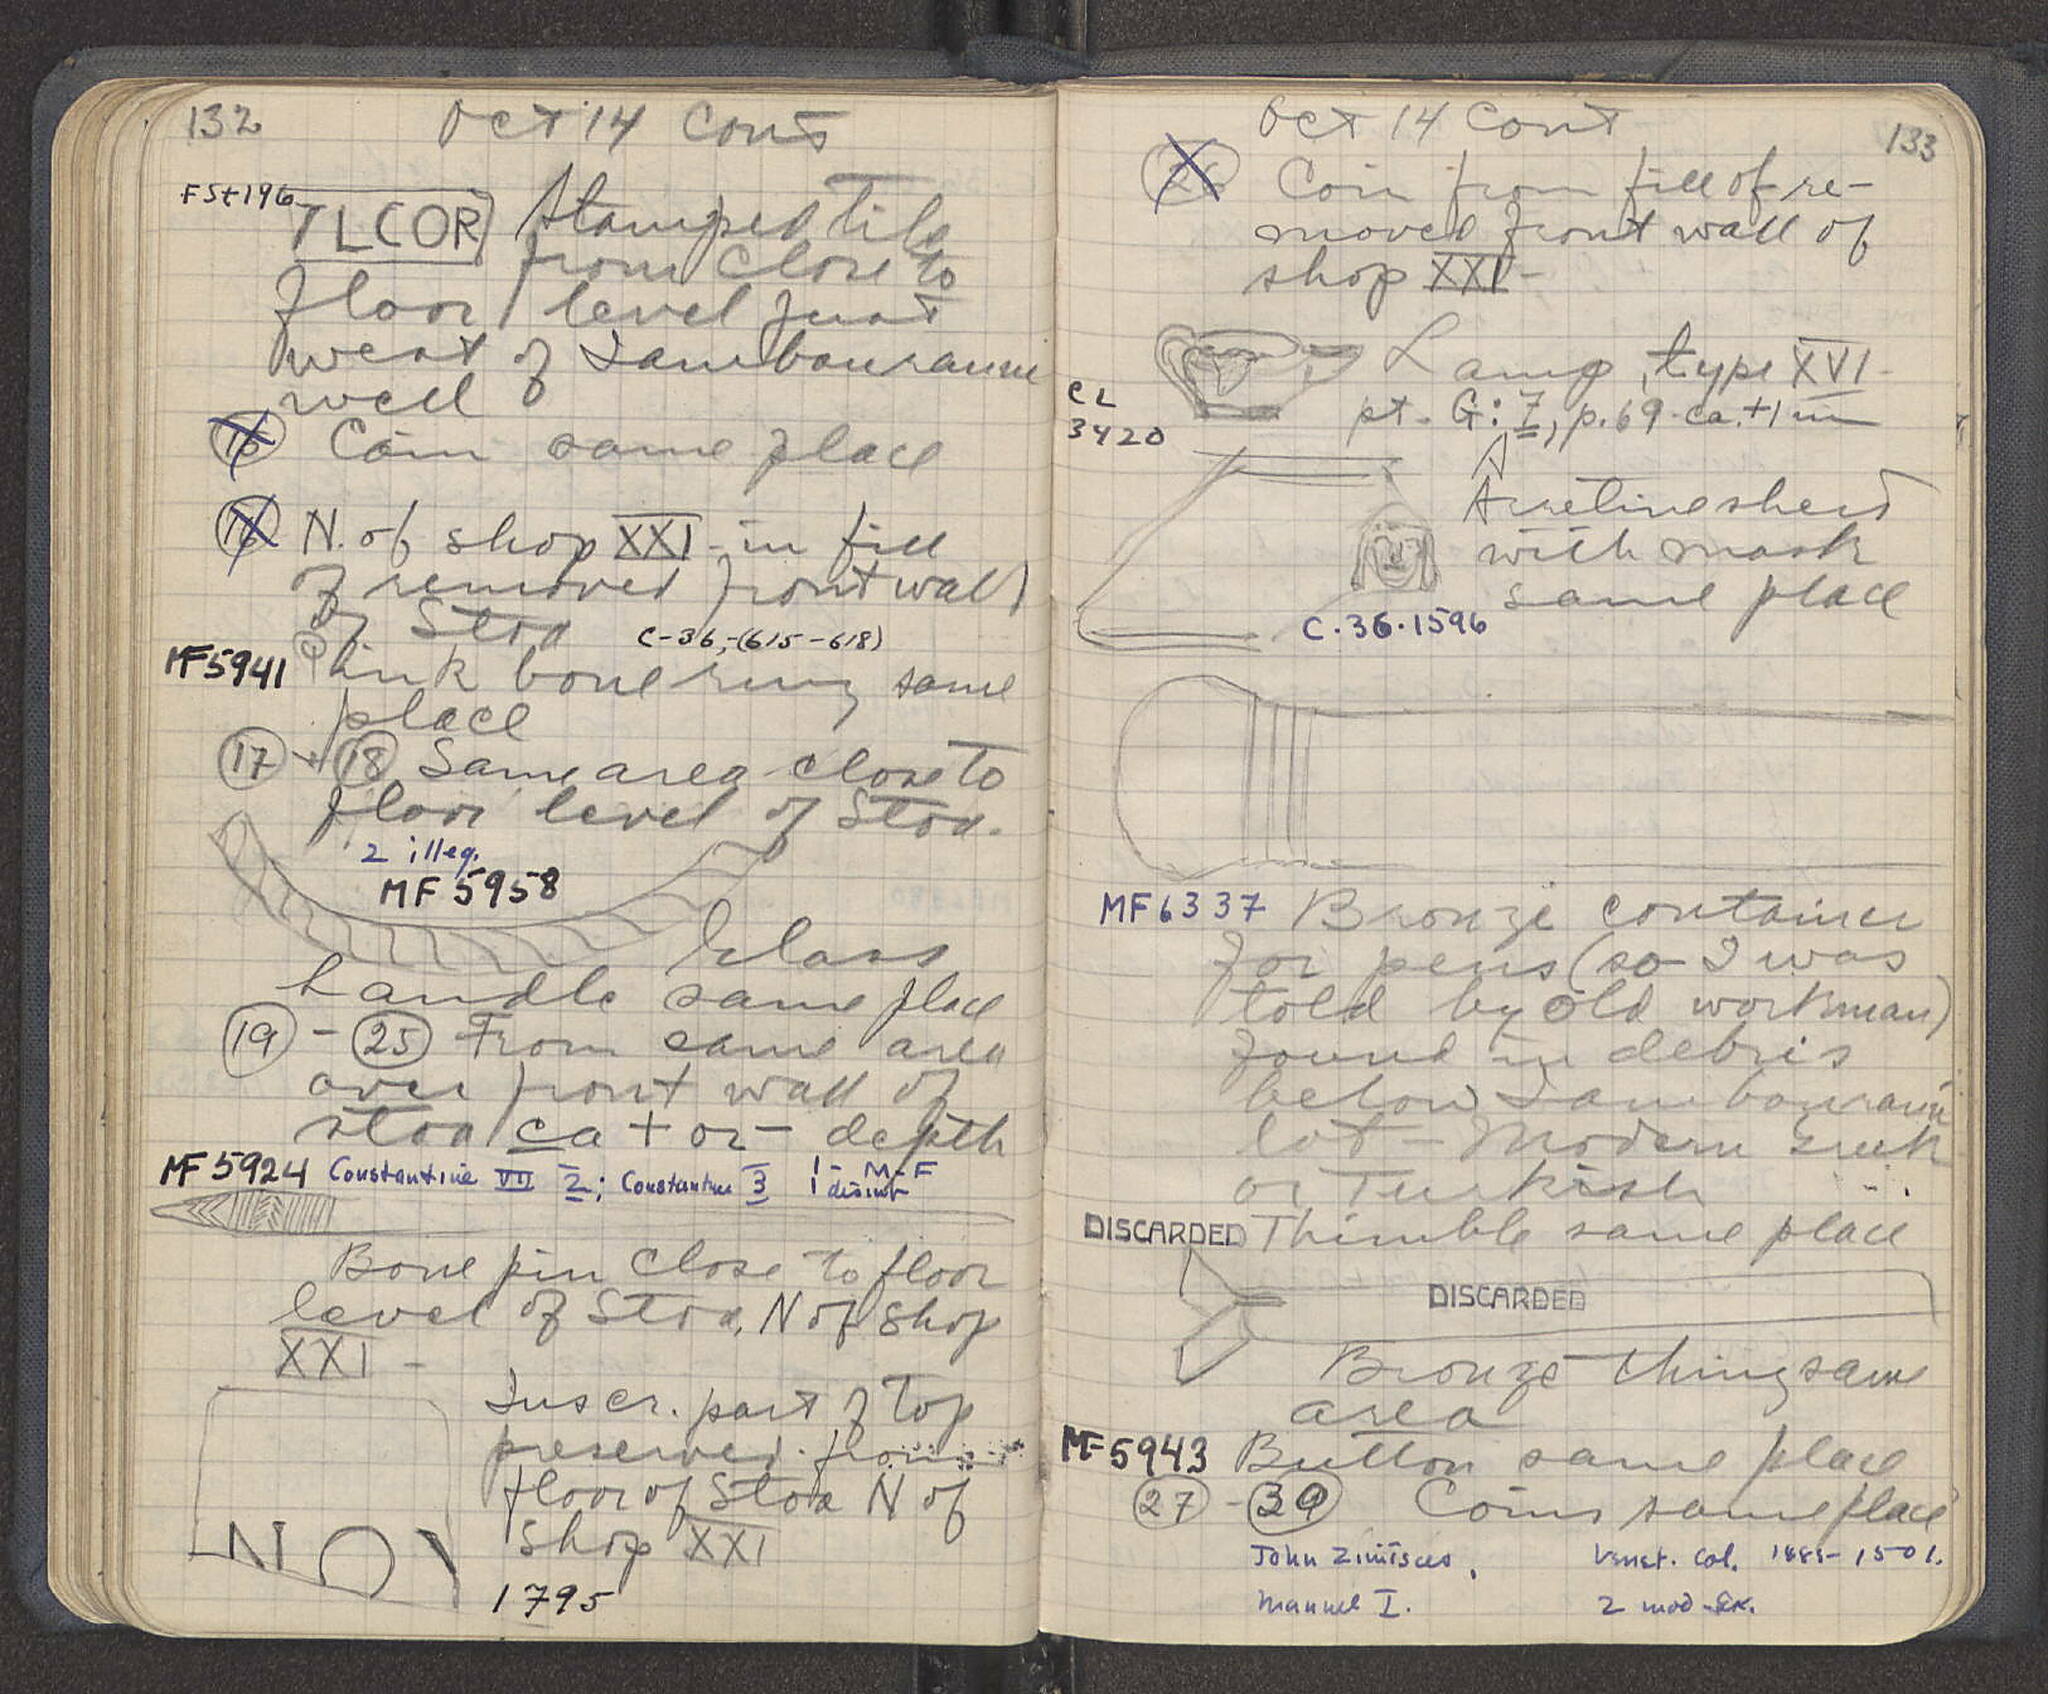 132
Oct 14 Cont
FSt 196
TLCOR Stamped Tile
from close to
floor level just
west of Lambouranni
well
(15) Coin same place
(16) N. of shop XXI - in fill
of removed front wall
of Stoa C-36,-(615-618)
MF 5941 Pink bone ring same
place
(17) + (18) Same area close to
floor level of Stoa.
2 illeg.
MF 5958
Glass
handle same place
(19) - (25) From same area
over front wall of
stoa ca + or - depth
MF 5924 Constantine VII 2; Constantine 3 1 - M-F
1 disint
Bone pin close to floor
level of Stoa, N of shop
XXI -
Inscr. part of top
preserved. from
floor of Stoa N of
Shop XXI
NO
1795
Oct 14 Cont
133
(26) Coin from fill of re-
moved front wall of
shop XXI -
Lamp, type XVI -
pt. G: 7, p. 69. ca. + 1 m
CL
3420
Arretine sherd
with mask
same place
C.36.1596
MF 6337 Bronze container
for pens (so I was
told by old workman)
found in debris
below Lambouranni
lot - Modern Greek
or Turkish
DISCARDED Thimble same place
DISCARDED
Bronze thing same
area
MF 5943 Button same place
(27) - (39) Coins same place
John Zimisces, Venet. Col. 1485-1501.
Manuel I. 2 mod-Gk.